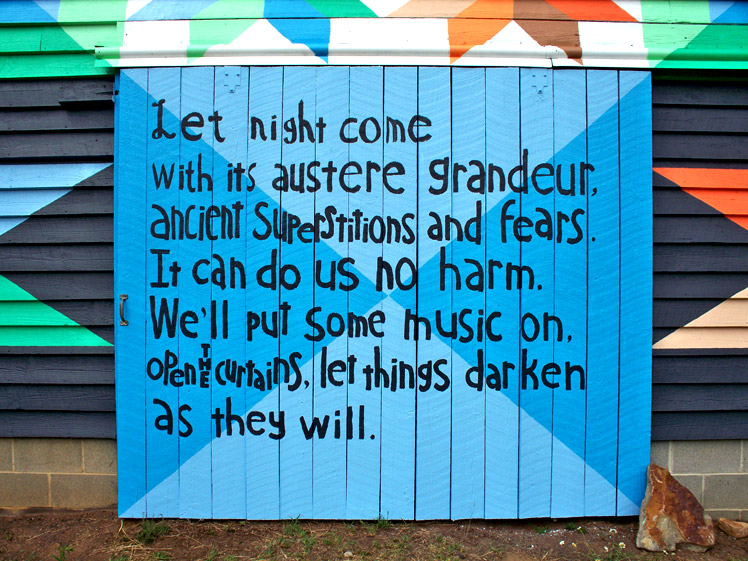 Let night come
with its austere grandeur,
ancient superstitions and fears.
It can do us no harm.
We'll put some music on,
open THE curtains, let things darken
as they will.